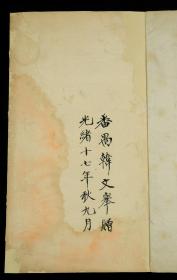 番禺韓文舉贈
光緒十七年秋九月